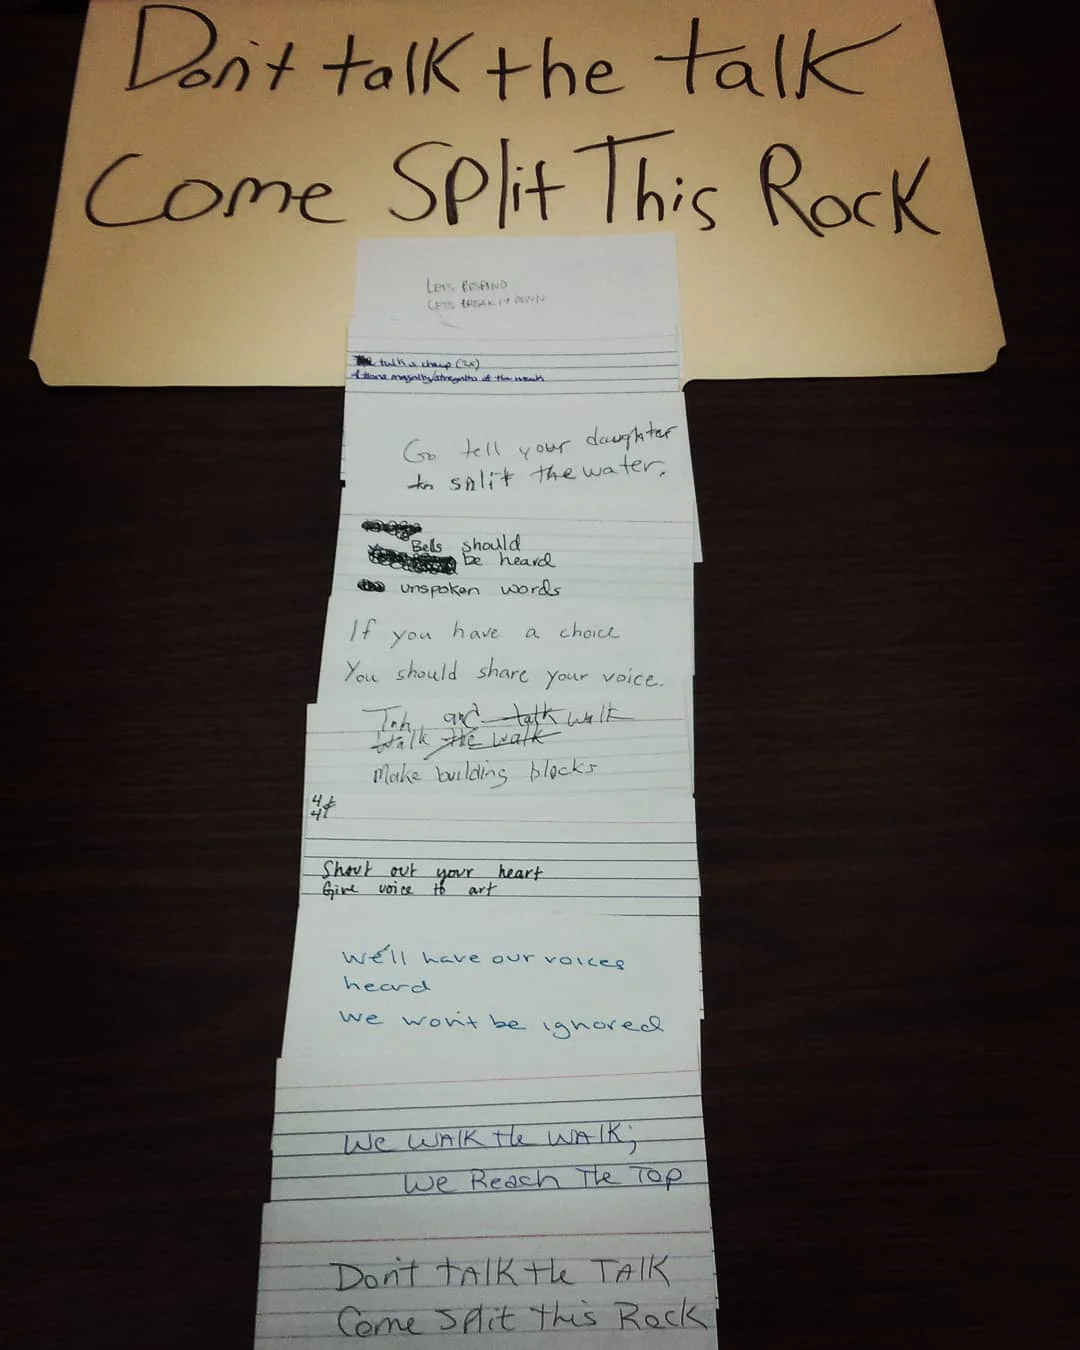 Don't talk the talk
Come Split This Rock
Let's
Lets Break it down
talk is cheap (2x)
of the weak
Go tell your daughter
to split the water.
Bells should
be heard
unspoken words
If you have a choice
You should share your voice.
and talk walk
talk the walk
Make building blocks
Shout out your heart
Give voice to art
We'll have our voices
heard
We won't be ignored
We WALK the WALK;
We Reach The Top
Don't tALK the TALK
Come Split this Rock